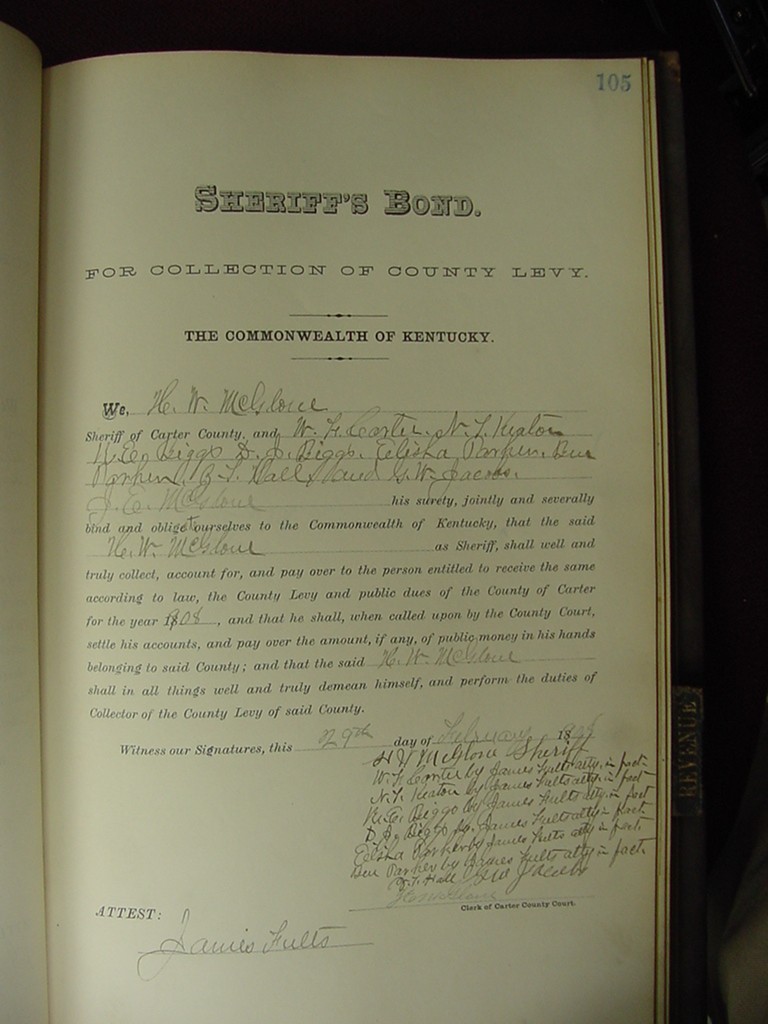 105
SHERIFF'S BOND.
FOR COLLECTION OF COUNTY LEVY.
THE COMMONWEALTH OF KENTUCKY.
We, H. W. McGlone
Sheriff of Carter County, and W. F. Carter. N. T. Keaton
W. E. Biggs D. J. Biggs. Elisha Parker. Ben
Parker, R. T. Hall, and G. W. Jacobs.
J. E. McGlone his surety, jointly and severally
bind and oblige ourselves to the Commonwealth of Kentucky, that the said
H. W. McGlone as Sheriff, shall well and
truly collect, account for, and pay over to the person entitled to receive the same
according to law, the County Levy and public dues of the County of Carter
for the year 1908, and that he shall, when called upon by the County Court,
settle his accounts, and pay over the amount, if any, of public money in his hands
belonging to said County; and that the said H. W. McGlone
shall in all things well and truly demean himself, and perform the duties of
Collector of the County Levy of said County.
Witness our Signatures, this 29th day of February 1908
H W McGlone Sheriff
W. F. Carter by James Fults atty. in fact
N. T. Keaton by James Fults atty. in fact
W. E. Biggs by James Fults atty. in fact
D. J. Biggs by James Fults atty in fact
Elisha Parker by James Fults atty in fact.
Ben Parker by James Fults atty in fact.
R. T. Hall Geo W Jacobs
Clerk of Carter County Court.
ATTEST:
James Fults
REVENUE